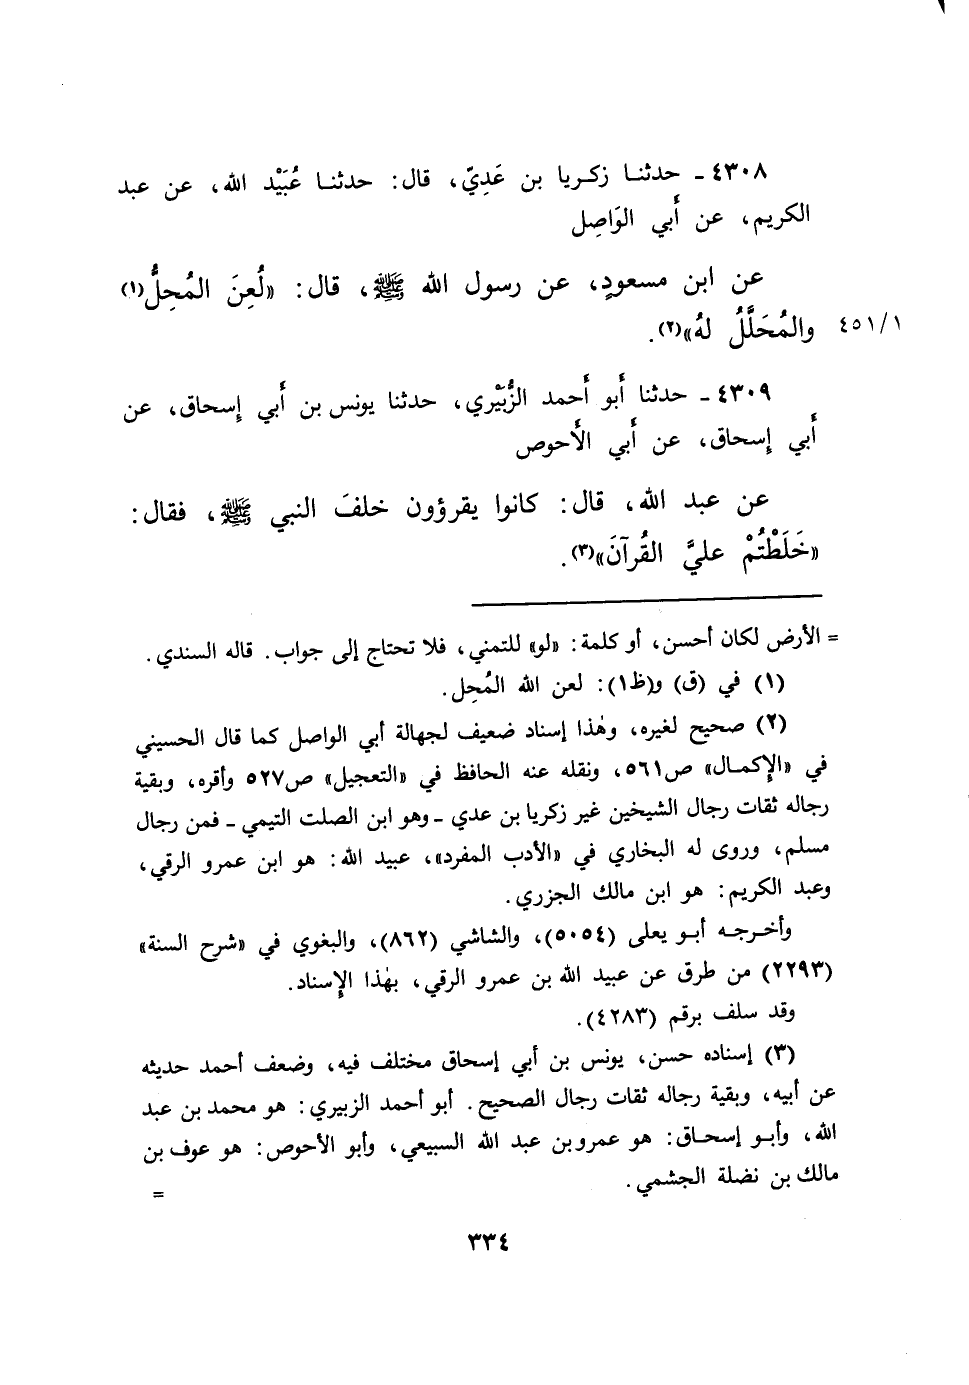 ٤٣٠٨ ـ حدثنـا زكـريا بن عَدِيّ، قال: حدثنـا عُبَيْد الله، عن عبد
الكريم، عن أَبي الوَاصِل
عن ابن مسعودٍ، عن رسول الله ﷺ، قال: «لُعِنَ المُحِلُّ(١)
والمُحَلَّلُ لهُ»(٢).
٤٥١/١
٤٣٠٩ ـ حدثنا أَبو أَحمد الزُّبَيْري، حدثنا يونس بن أَبي إِسحاق، عن
أَبي إِسحاق، عن أَبي الأَحوص
عن عبد الله، قال: كانوا يقرؤون خلفَ النبي ﷺ، فقال:
«خَلَطْتُمْ عليَّ القُرآنَ»(٣).
= الأرض لكان أحسن، أو كلمة: «لو» للتمني، فلا تحتاج إلى جواب. قاله السندي.
(١) في (ق) و(ظ١): لعن الله المُحِل.
(٢) صحيح لغيره، وهٰذا إسناد ضعيف لجهالة أبي الواصل كما قال الحسيني
في «الإِكمـال» ص٥٦١، ونقله عنه الحافظ في «التعجيل» ص٥٢٧ وأقره، وبقية
رجاله ثقات رجال الشيخين غير زكريا بن عدي ـ وهو ابن الصلت التيمي ـ فمن رجال
مسلم، وروى له البخاري في «الأدب المفرد»، عبيد الله: هو ابن عمرو الرقي،
وعبد الكريم: هو ابن مالك الجزري.
وأخـرجـه أبـو يعلى (٥٠٥٤)، والشاشي (٨٦٢)، والبغوي في «شرح السنة»
(٢٢٩٣) من طرق عن عبيد الله بن عمرو الرقي، بهٰذا الإِسناد.
وقد سلف برقم (٤٢٨٣).
(٣) إسناده حسن، يونس بن أبي إسحاق مختلف فيه، وضعف أحمد حديثه
عن أبيه، وبقية رجاله ثقات رجال الصحيح. أبو أحمد الزبيري: هو محمد بن عبد
الله، وأبـو إسحـاق: هو عمرو بن عبد الله السبيعي، وأبو الأحوص: هو عوف بن
مالك بن نضلة الجشمي.
=
٣٣٤